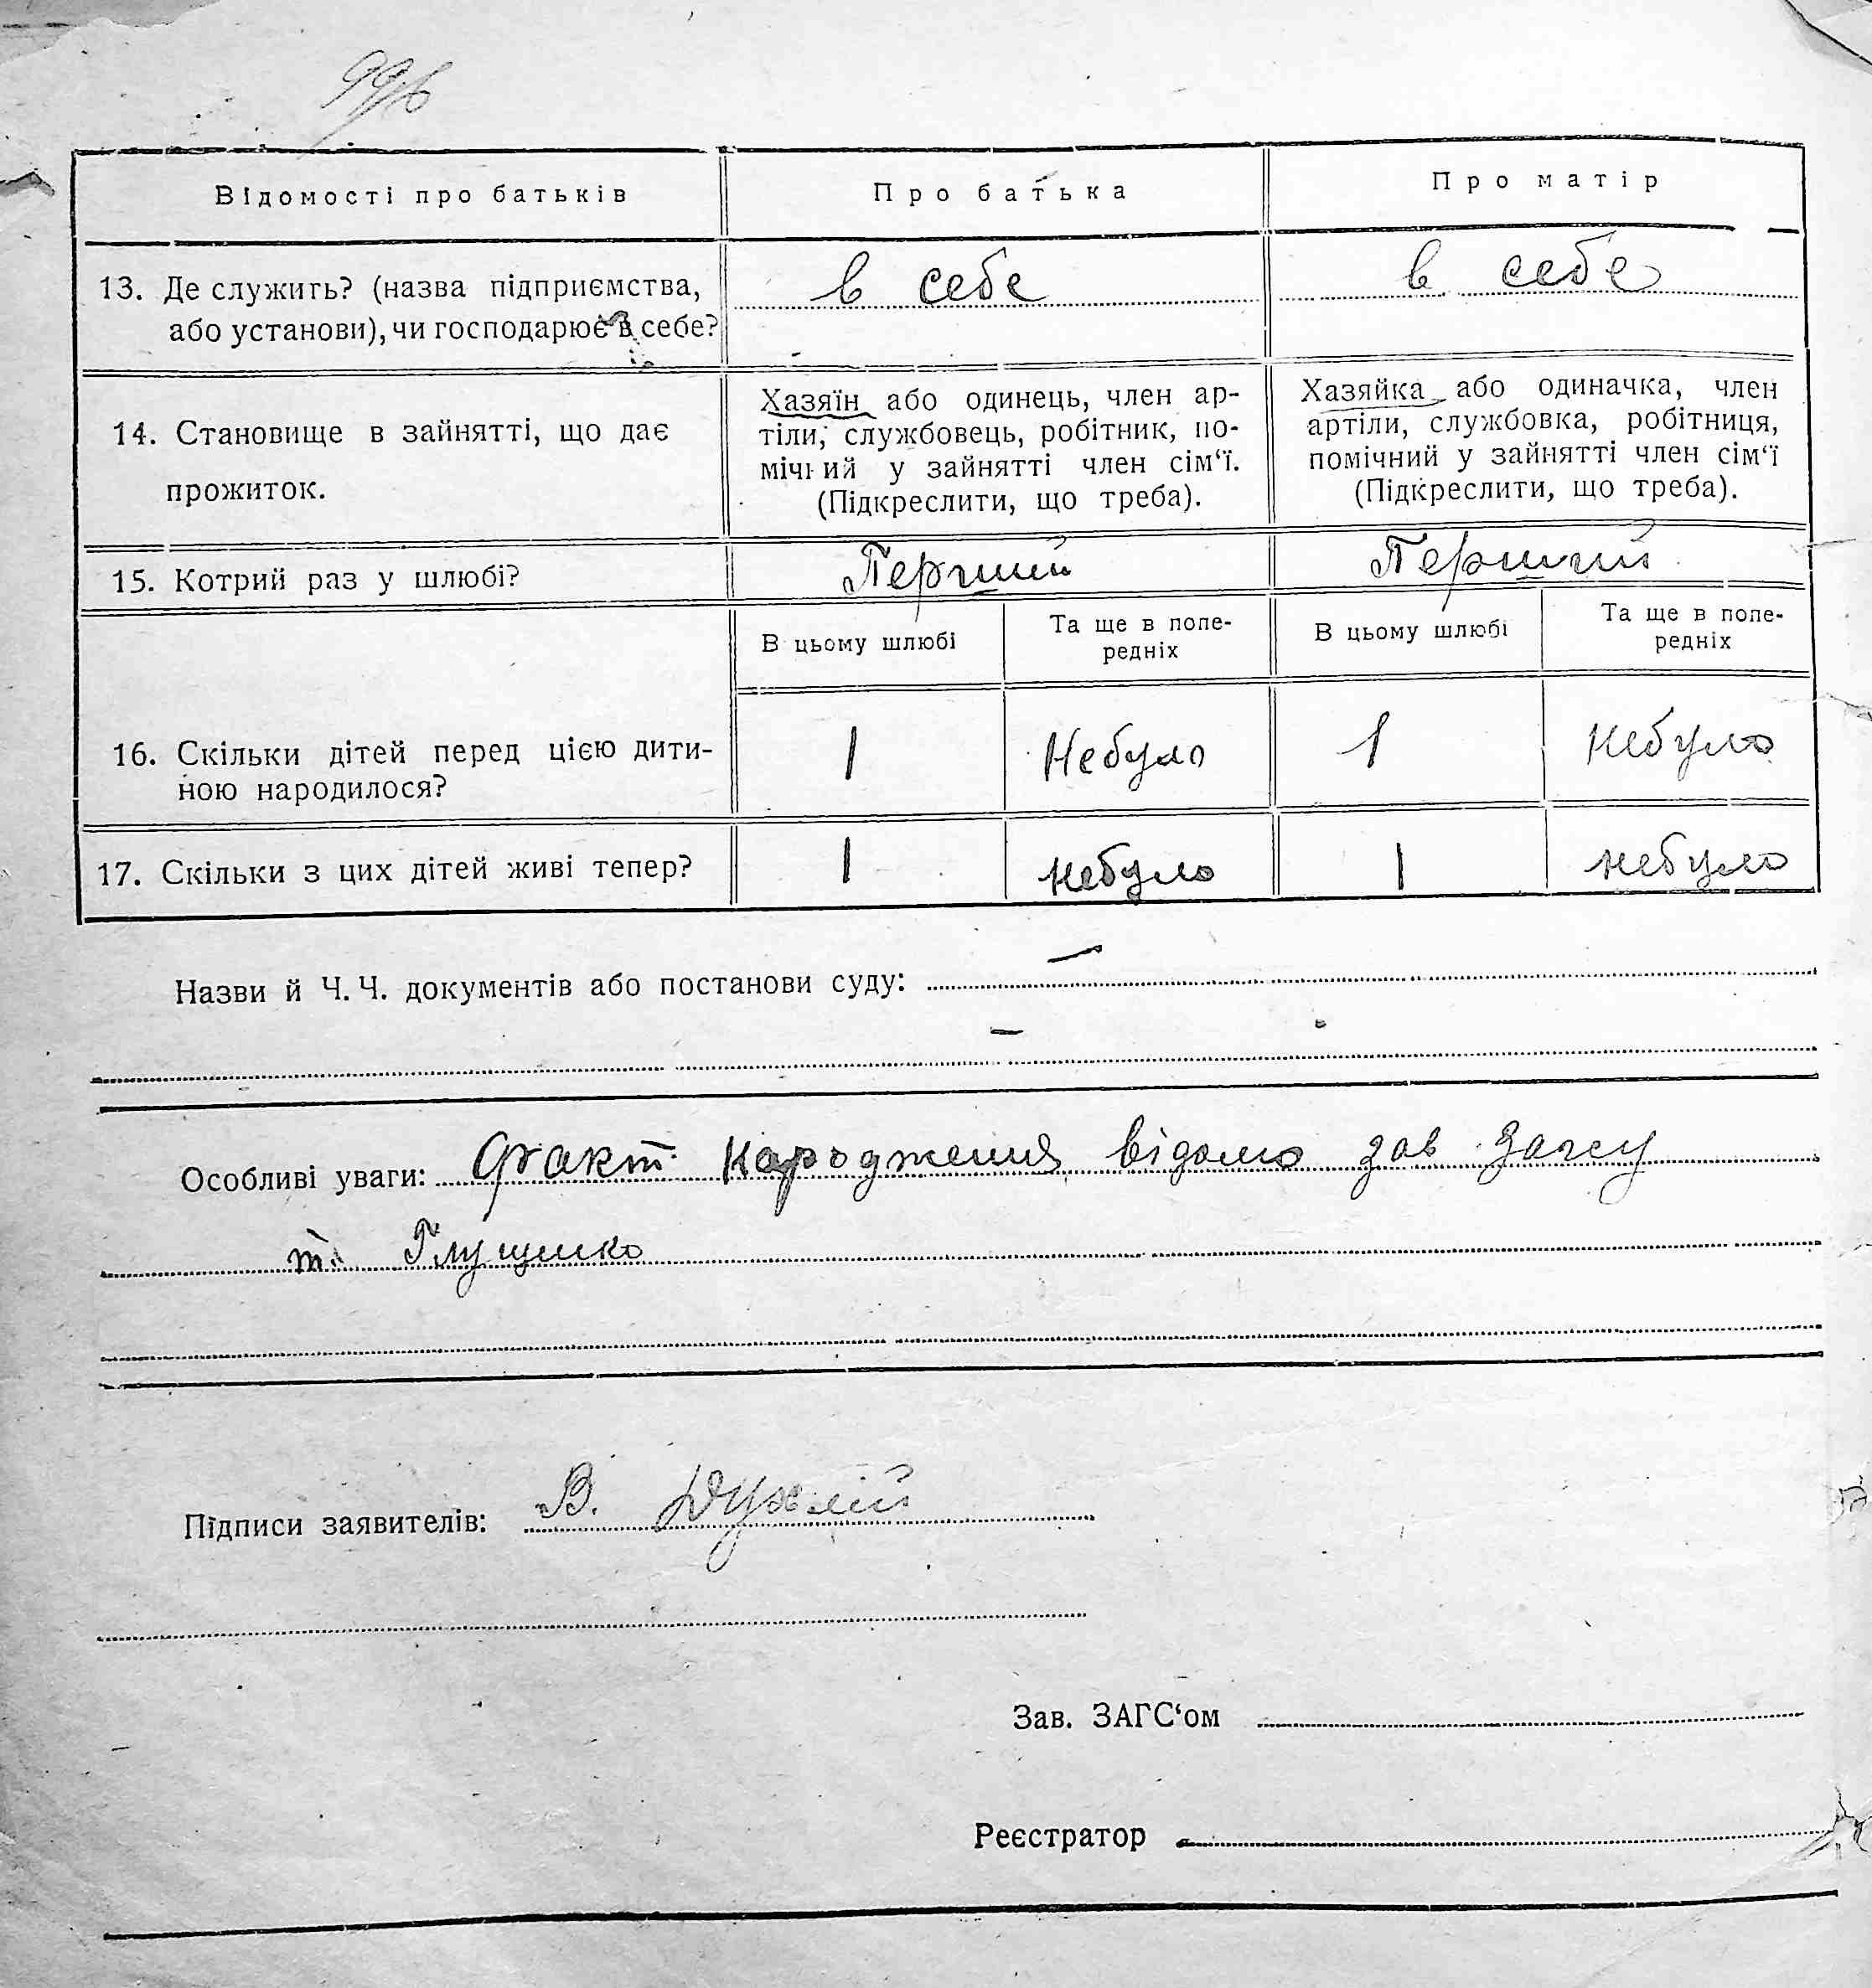 99б
Відомості про батьків
Про батька
Про матір
13. Де служить? (назва підприємства,
або установи), чи господарює в себе?
в себе
в себе
14. Становище в зайнятті, що дає
прожиток.
Хазяїн або одинець, член ар-
тіли, службовець, робітник, по-
мічний у зайнятті член сім‘ї.
(Підкреслити, що треба).
Хазяйка або одиначка, член
артіли, службовка, робітниця,
помічний у зайнятті член сім‘ї
(Підкреслити, що треба).
15. Котрий раз у шлюбі?
Перший
Перший
В цьому шлюбі
Та ще в попе-
редніх
В цьому шлюбі
Та ще в попе-
редніх
16. Скільки дітей перед цією дити-
ною народилося?
1
Небуло
1
Небуло
17. Скільки з цих дітей живі тепер?
1
небуло
1
небуло
Назви й Ч. Ч. документів або постанови суду: —
—
Особливі уваги: Факт народження відомо зав загсу
т. Глущенко
Підписи заявителів: В.
Зав. ЗАГС‘ом
Реєстратор